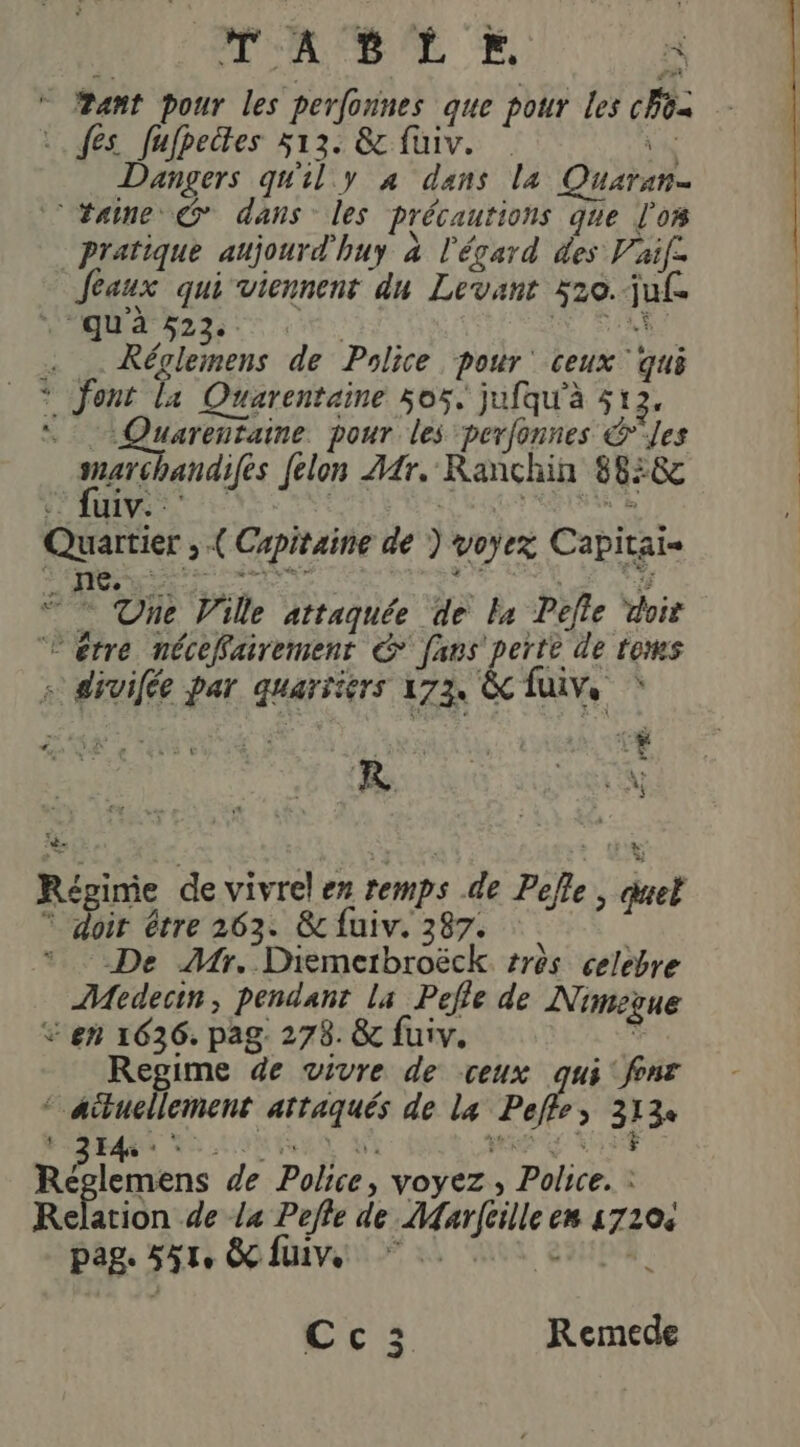 TABLE.
Tant pour les perſonnes que pour les cho-
ſes ſuſpectes 513. & ſuiv.
Dangers qu'il y a dans la Quaran-
taine & dans les précautions que l'on
pratique aujourd'huy à l'égard des Vaiſ-
ſeaux qui viennent du Levant 520. juſ-
qu'à 523.
Réglemens de Police pour ceux qui
font la Quarentaine 505. juſqu'à 512.
Quarentaine pour les perſonnes & les
marchandiſes ſelon Mr. Ranchin 88. &
ſuiv.
Quartier, (Capitaine de) voyez Capitai-
ne.
Une Ville attaquée de la Peſte doit
être néceſſairement & ſans perte de tems
diviſée par quartiers 173. & ſuiv.
R
Régime de vivre en temps de Peſte, quel
doit être 263. & ſuiv. 387.
De Mr. Diemerbroëck très celebre
Medecin, pendant la Peſte de Nimegue
en 1636. pag. 278. & ſuiv.
Regime de vivre de ceux qui ſont
actuellement attaqués de la Peſte, 313.
314.
Réglemens de Police, voyez, Police.
Relation de la Peſte de Marſeille en 1720.
pag. 551. & ſuiv.
Cc 3 Remede